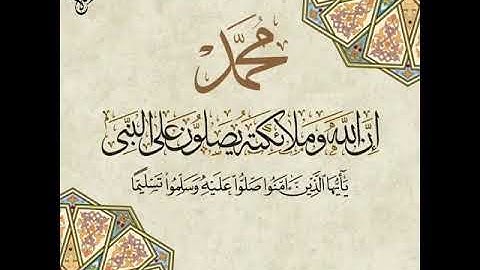 محمد
إن الله وملائكته يصلون على النبي
يَٰٓأَيُّهَا ٱلَّذِينَ ءَامَنُوا۟ صَلُّوا۟ عَلَيْهِ وَسَلِّمُوا۟ تَسْلِيمًا